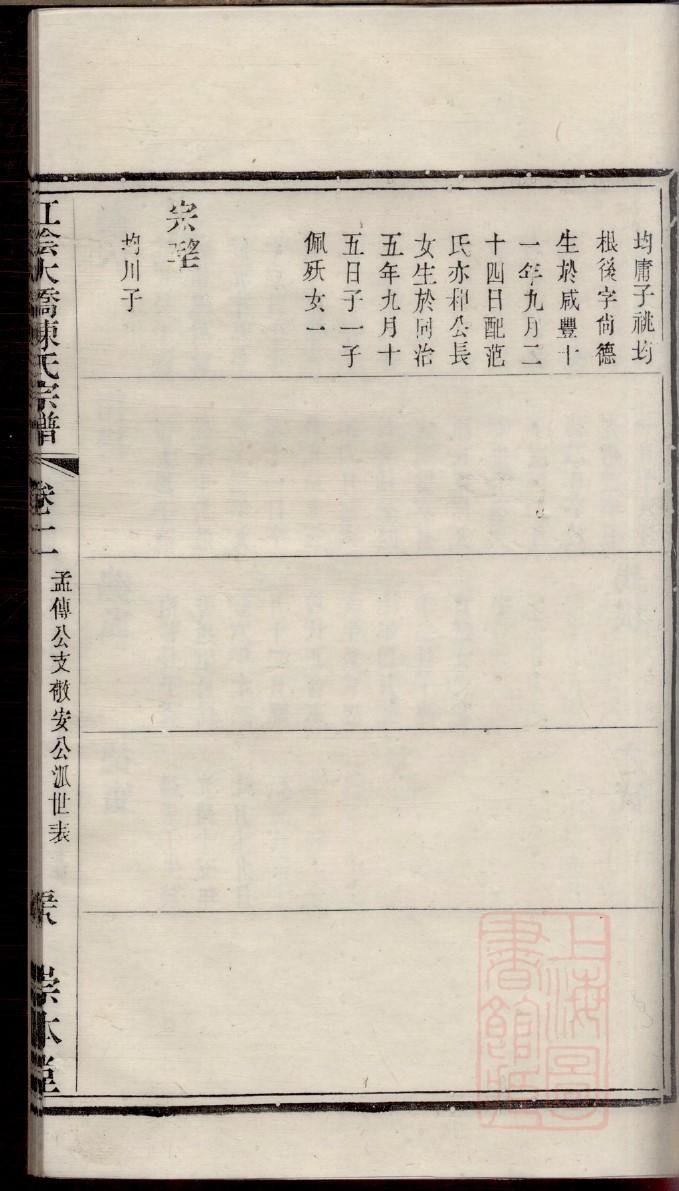 均庸子祧均
根後字尙德
生於咸豐十
一年九月二
十四日配范
氏亦和公長
女生於同治
五年九月十
五日子一子
佩殀女一
宗望
均川子
江陰大橋陳氏宗譜
卷二
孟傅公支敬安公派世表
崇本堂
上海圖
書館藏